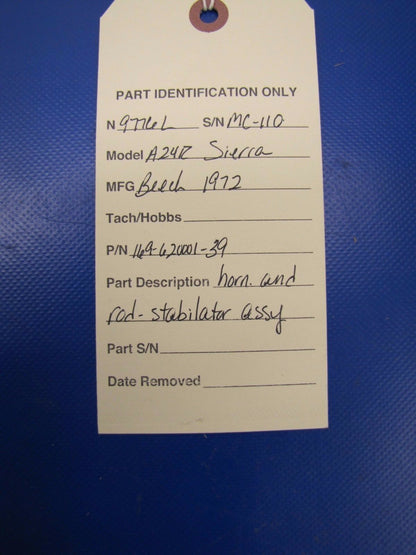 PART IDENTIFICATION ONLY
N 9776L S/N MC-110
Model A24R Sierra
MFG Beech 1972
Tach/Hobbs
P/N 169-620001-39
Part Description horn and
rod - stabilator assy
Part S/N
Date Removed